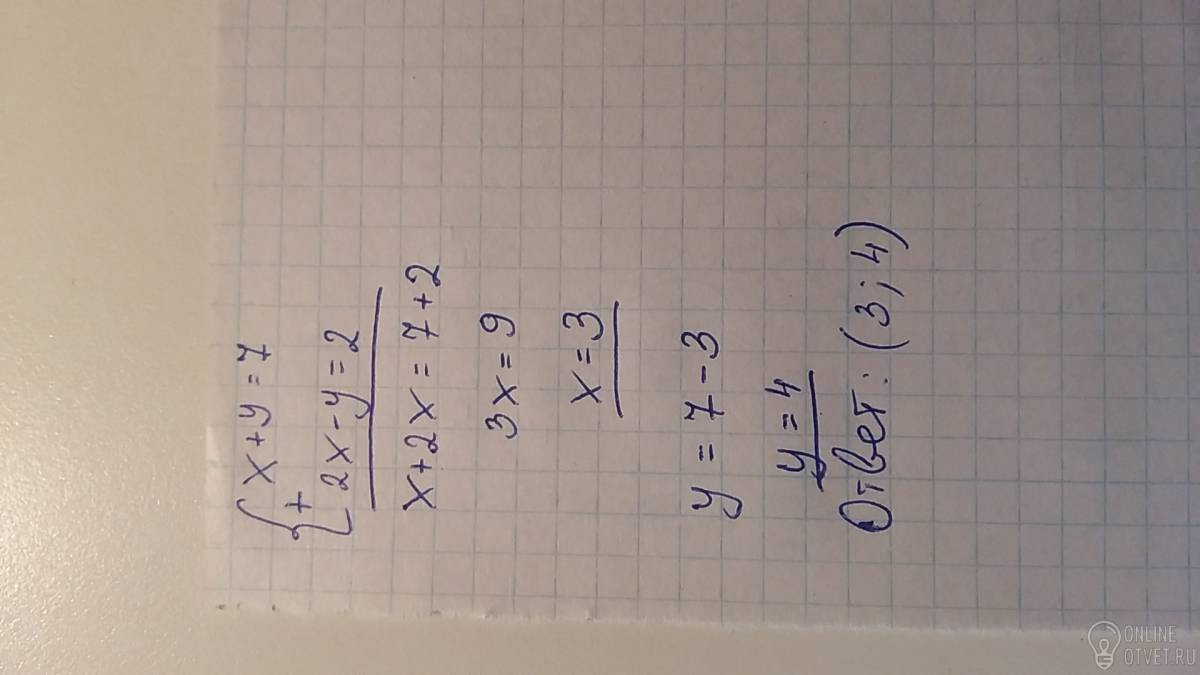 x+y=7
+
2x-y=2
x+2x=7+2
3x=9
x=3
y=7-3
y=4
Ответ: (3; 4)
ONLINE
OTVET.RU